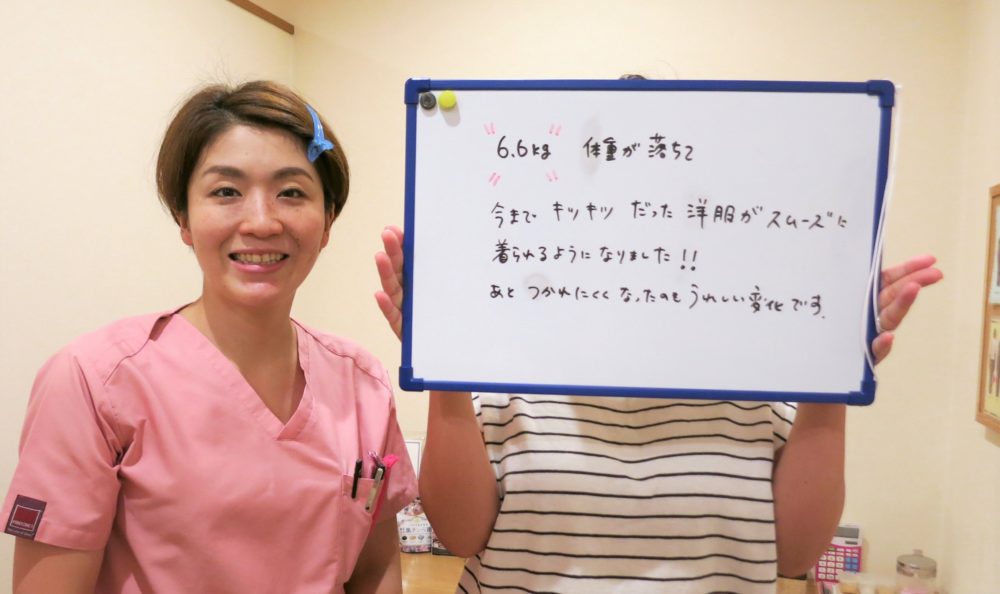 6.6kg 体重が落ちて
今まで キツキツ だった 洋服が スムーズに
着られるようになりました!!
あと つかれにくく なったのも うれしい変化です.